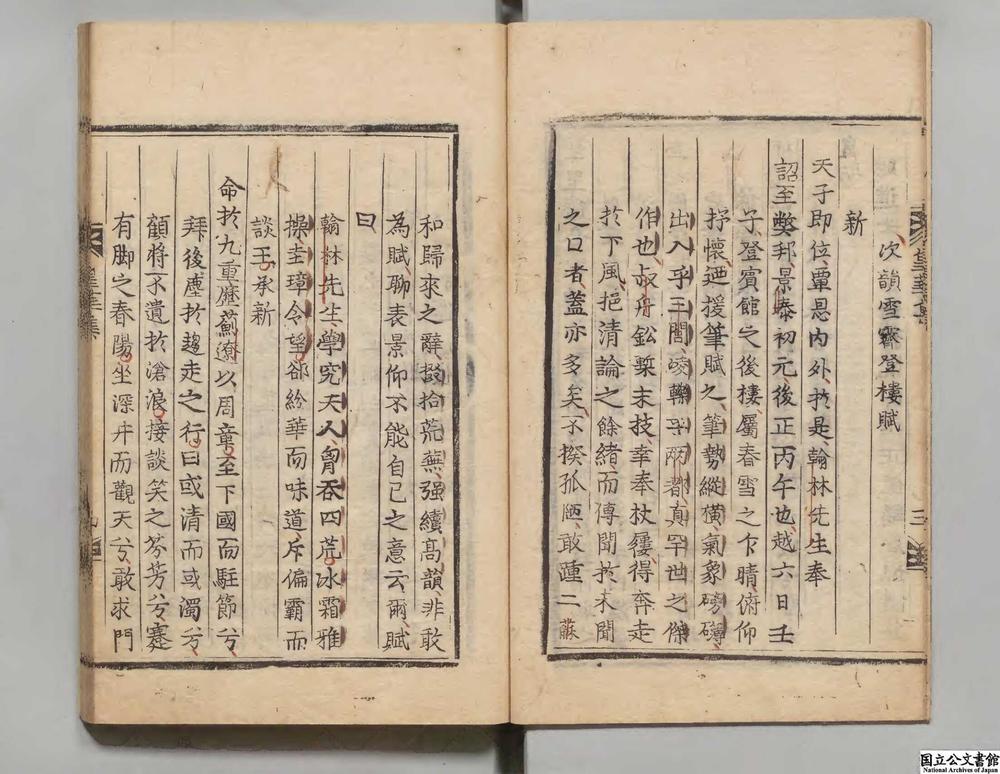 次韻雪霽登樓賦
新
天子即位覃恩内外於是翰林先生奉
詔至弊邦景泰初元後正丙午也越六日壬
子登賓館之後樓屬春雪之乍晴俯仰
抒懷迺援筆賦之筆勢縱横氣象磅礴
出入乎三閭凌轢乎兩都真罕世之傑
作也叔舟鈆槧末技幸奉杖屨得奔走
於下風挹清論之餘緒而傳聞於未聞
之口者蓋亦多矣不揆孤陋敢踵二蘇
和歸來之辭掇拾荒蕪强續高韻非敢
為賦聊表景仰不能自已之意云爾賦
曰
翰林先生學究天人胷吞四荒冰霜雅
操圭璋令望郤紛華而味道斥偏霸而
談王承新
命於九重歷薊遼以周章至下國而駐節兮
拜後塵於趨走之行曰或清而或濁兮
顧將不遺於滄浪接談笑之芬芳兮蹇
有脚之春陽坐深井而觀天兮敢求門
皇華集
皇華集
三
九
国立公文書館
National Archives of Japan